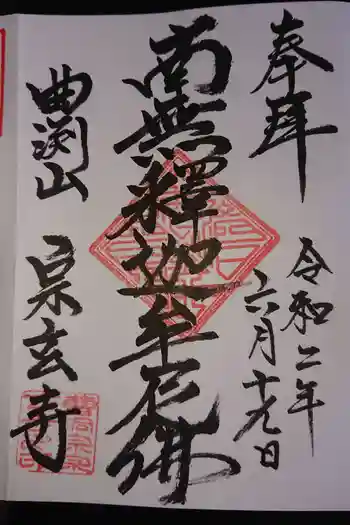 奉拝
令和二年
六月十九日
南無釋迦牟尼佛
曲渕山
宗玄寺